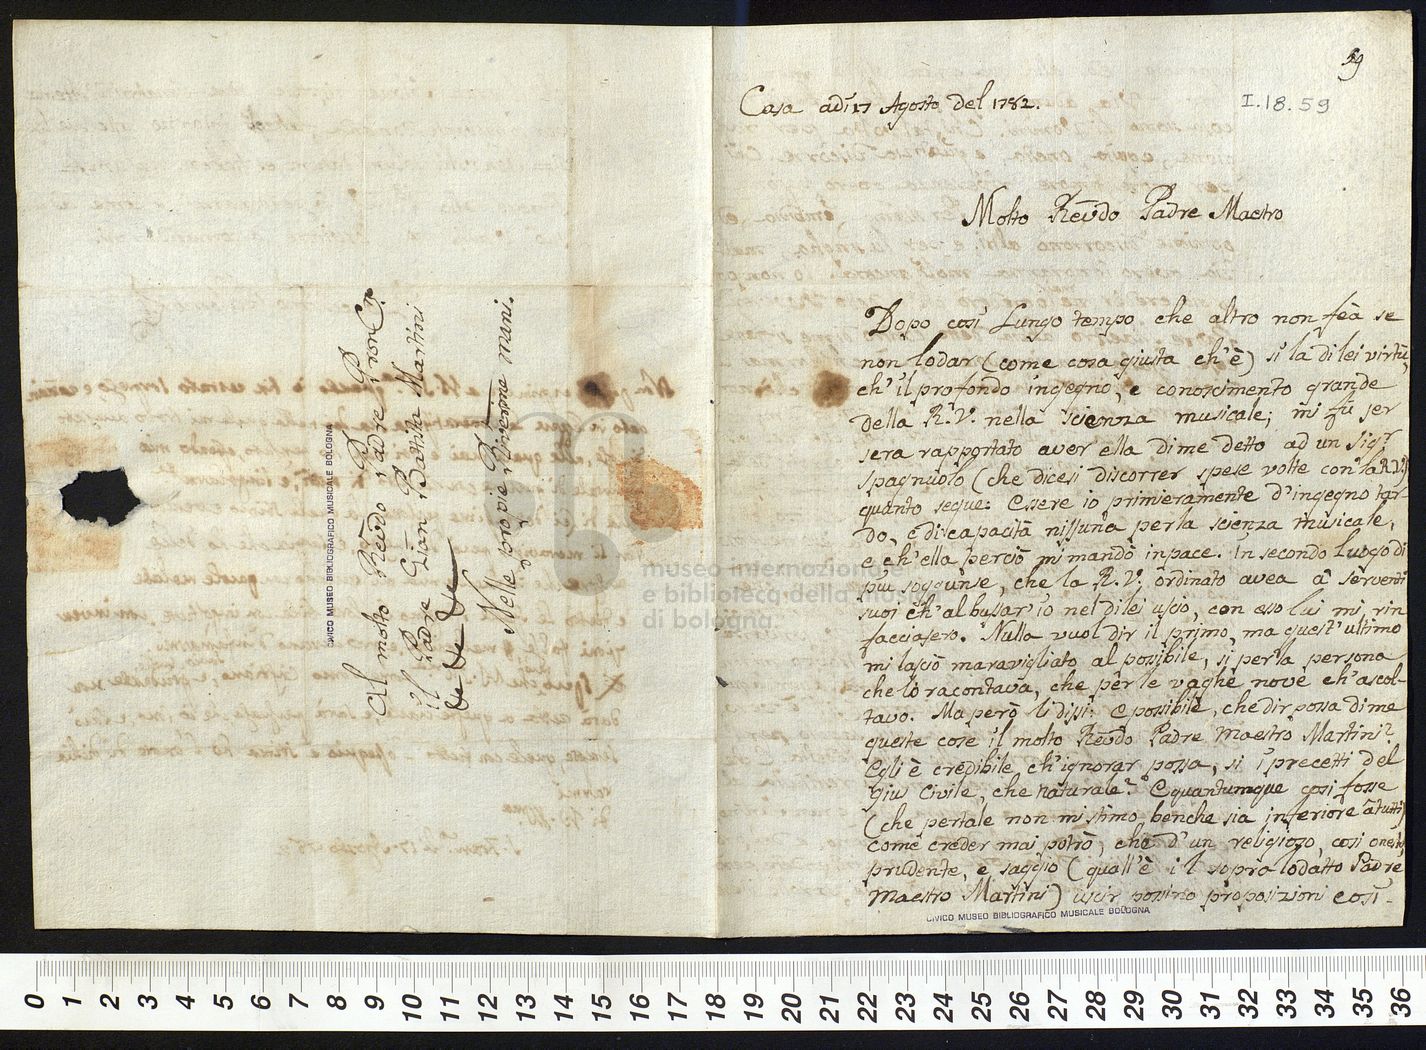 Al molto Revdo Padre Pron
il Padre Gian Battista Martini
Nelle proprie mani.
CIVICO MUSEO BIBLIOGRAFICO MUSICALE BOLOGNA
59
I.18.59
Casa adi 17 Agosto del 1782.
Molto Revdo Padre Maestro
Dopo cosi Lungo tempo che altro non feà se
non lodar (come cosa giusta ch'è) si la di lei virtù,
ch' il profondo ingegno, e conoscimento grande
della R.V. nella scienza musicale; mi fù jer
sera rapportato aver ella di me detto ad un Sigr
spagnuolo (che dicesi discorrer spese volte con la R.V.)
quanto segue: Essere io primieramente d'ingegno tar-
do, e di capacità nissuna per la scienza musicale,
e ch'ella perciò mi mandò in pace. In secondo luogo di
più sogeunse, che la R.V. ordinato avea à serventi
suoi ch' al bussar io nel di lei uscio, con esso lui mi rin
facciasero. Nulla vuol dir il primo, ma quest'ultimo
mi lasciò maravigliato al possibile, si per la persona
che lò racontava, che per le vaghe nove ch'ascol-
tavo. Ma però li dissi: e possibile, che dir possa di me
queste cose il molto Revdo Padre Maestro Martini?
Egli è credibile ch'ignorar possa, si i precetti del
Giu Civile, che naturale? E quantumque cosi fosse
(che per tale non mi stimo, benche sia inferiore à tutti)
come creder mai potrò, che d'un religioso, cosi onesto,
prudente, e saggio (quall'è il sopra lodatto Padre
Maestro Martini) uscir possino proposizioni cosi-
CIVICO MUSEO BIBLIOGRAFICO MUSICALE BOLOGNA
museo internazionale
e biblioteca della musica
di bologna
0 1 2 3 4 5 6 7 8 9 10 11 12 13 14 15 16 17 18 19 20 21 22 23 24 25 26 27 28 29 30 31 32 33 34 35 36